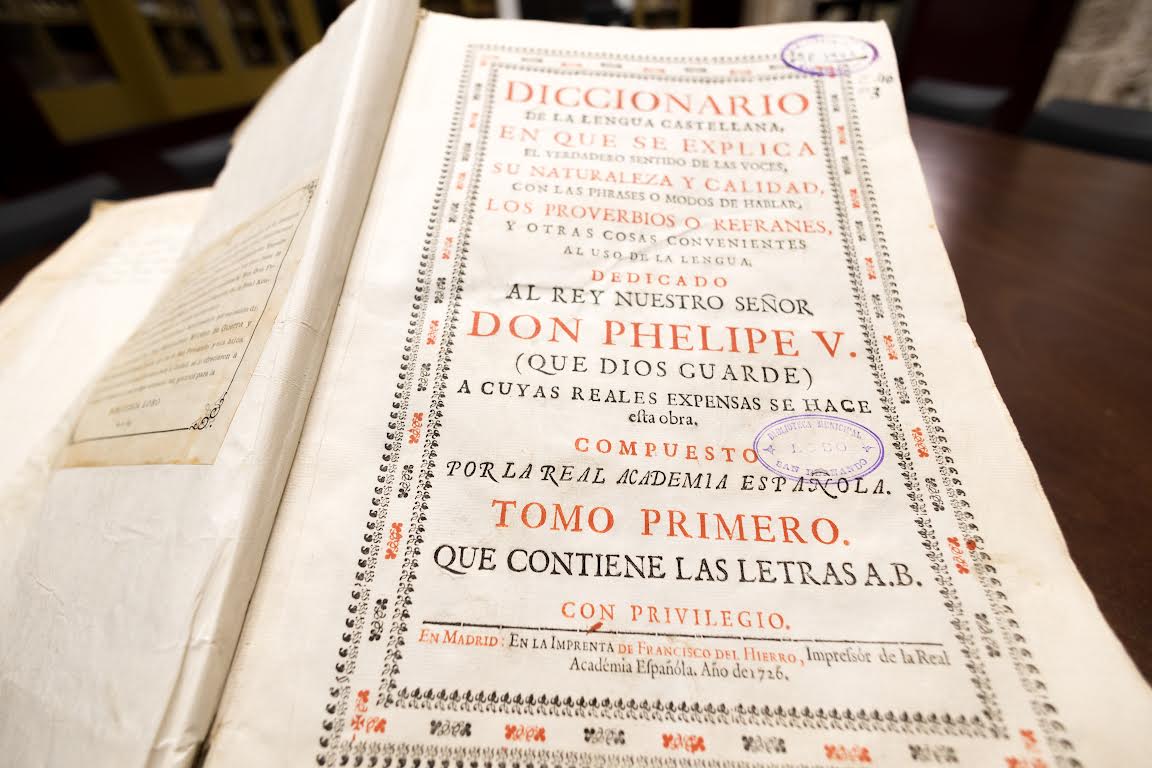 DICCIONARIO
DE LA LENGUA CASTELLANA,
EN QUE SE EXPLICA
EL VERDADERO SENTIDO DE LAS VOCES,
SU NATURALEZA Y CALIDAD,
CON LAS PHRASES O MODOS DE HABLAR,
LOS PROVERBIOS O REFRANES,
Y OTRAS COSAS CONVENIENTES
AL USO DE LA LENGUA.
DEDICADO
AL REY NUESTRO SEÑOR
DON PHELIPE V.
(QUE DIOS GUARDE)
A CUYAS REALES EXPENSAS SE HACE
eſta obra.
COMPUESTO
POR LA REAL ACADEMIA ESPAÑOLA.
TOMO PRIMERO.
QUE CONTIENE LAS LETRAS A.B.
CON PRIVILEGIO.
EN MADRID: EN LA IMPRENTA DE FRANCISCO DEL HIERRO, Impreſſor de la Real
Académia Eſpañóla. Año de 1726.
BIBLIOTECA MUNICIPAL
LOBO
SAN FERNANDO
Guerra y
BIBLIOTECA LOBO